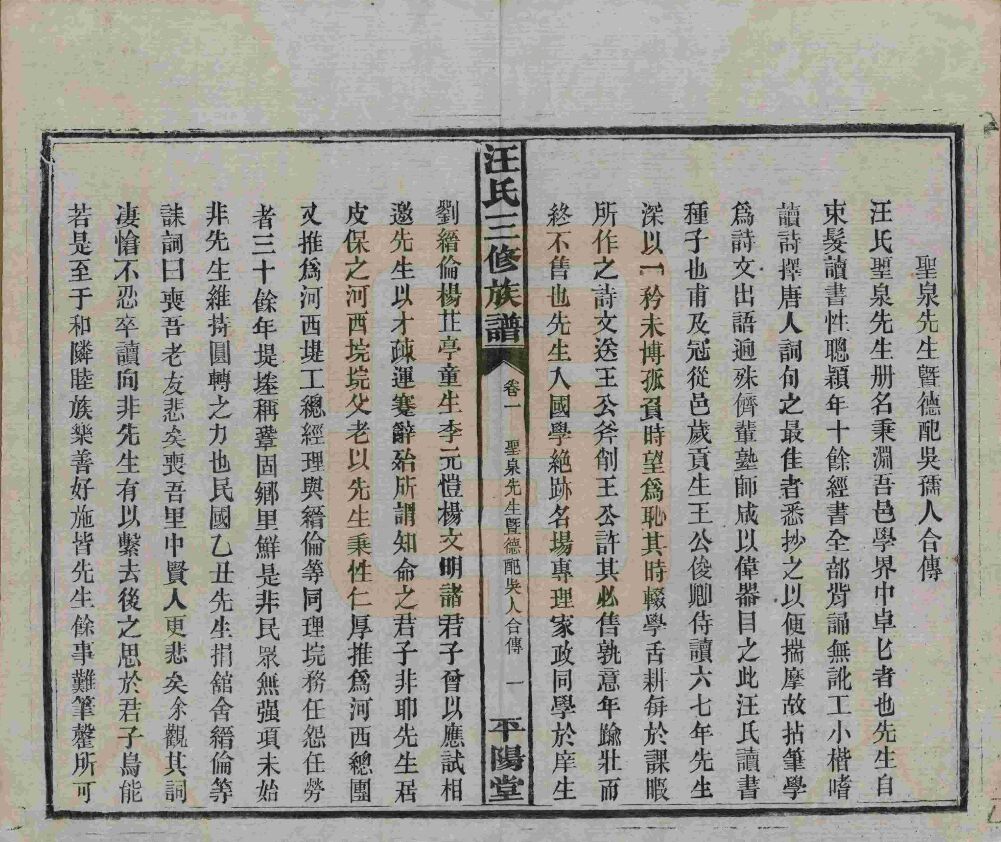 聖泉先生曁德配吳孺人合傳
汪氏聖泉先生册名秉淵吾邑學界中卓匕者也先生自
束髮讀書性聰穎年十餘經書全部背誦無訛工小楷嗜
讀詩擇唐人詞句之最佳者悉抄之以便揣摩故拈筆學
爲詩文出語迥殊儕輩塾師咸以偉器目之此汪氏讀書
種子也甫及冠從邑歲貢生王公俊卿侍讀六七年先生
深以一衿未博孤負時望爲恥其時輟學舌耕每於課暇
所作之詩文送王公斧削王公許其必售孰意年踰壯而
終不售也先生入國學絶跡名場專理家政同學於庠生
汪氏三修族譜
卷一
聖泉先生曁德配吳人合傳
一
平陽堂
劉縉倫楊芷亭童生李元愷楊文明諸君子曾以應試相
邀先生以才疎運蹇辭殆所謂知命之君子非耶先生居
皮保之河西垸垸父老以先生秉性仁厚推爲河西總團
又推爲河西堤工總經理與縉倫等同理垸務任怨任勞
者三十餘年堤塍稱鞏固鄉里鮮是非民眾無强項未始
非先生維持圓轉之力也民國乙丑先生捐舘舍縉倫等
誄詞曰喪吾老友悲矣喪吾里中賢人更悲矣余觀其詞
凄愴不忍卒讀向非先生有以繫去後之思於君子烏能
若是至于和隣睦族樂善好施皆先生餘事難筆罄所可